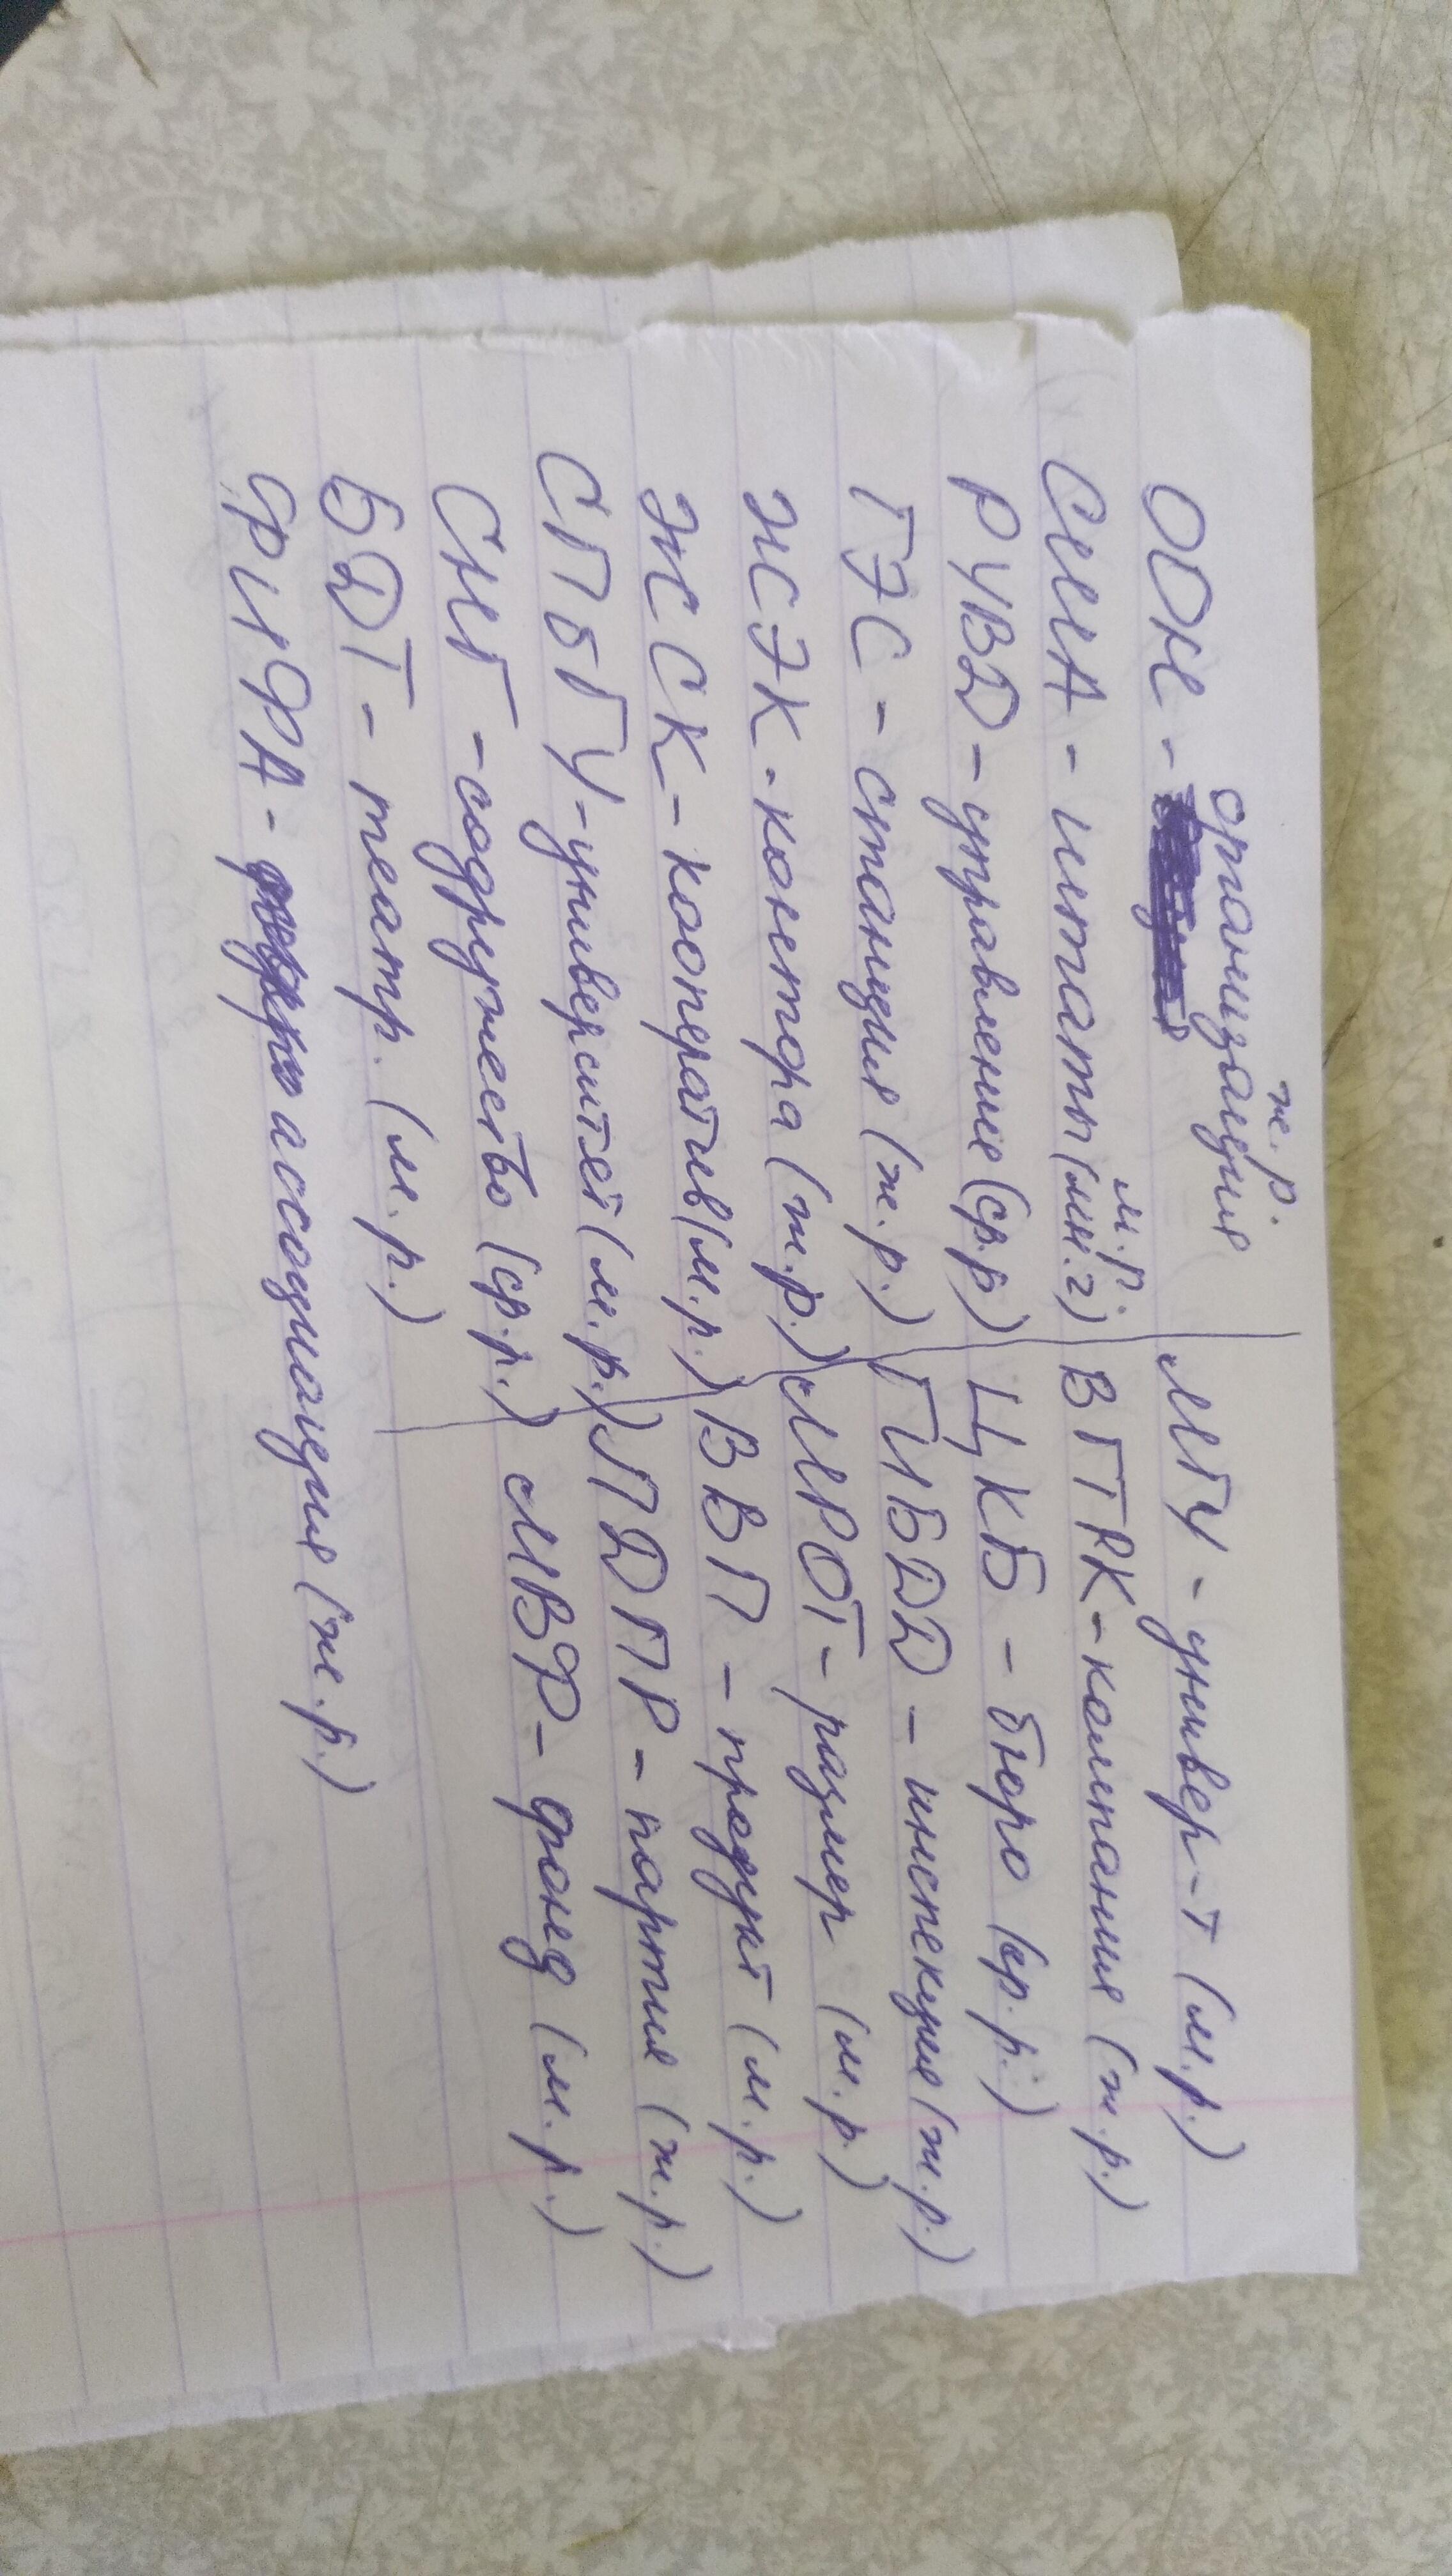 ж.р.
организация
ООН -
м.р.
США - штаты (мн.ч)
РУВД - управление (ср.р)
ГЭС - станция (ж.р.)
ЖЭК - контора (ж.р.)
ЖСК - кооператив (м.р.)
СПбГУ - университет (м.р.)
СНГ - содружество (ср.р.)
БДТ - театр. (м.р.)
ФИФА - ассоциация (ж.р.)
МГУ - универ-т (м.р.)
ВГТРК - компания (ж.р.)
ЦКБ - бюро (ср.р.)
ГИБДД - инспекция (ж.р.)
МРОТ - размер (м.р.)
ВВП - продукт (м.р.)
ЛДПР - партия (ж.р.)
МВФ - фонд (м.р.)